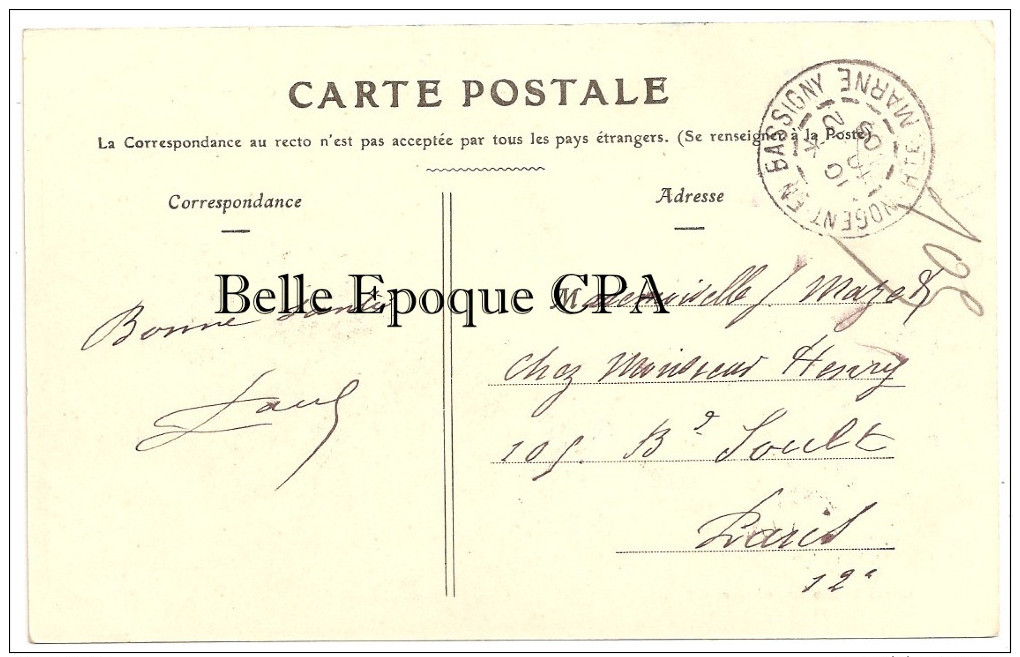 CARTE POSTALE
La Correspondance au recto n'est pas acceptée par tous les pays étrangers. (Se renseigner à la Poste)
Correspondance
Adresse
NOGENT-EN-BASSIGNY HTE MARNE
Belle Epoque CPA
Bonne santé
Paul
Mademoiselle J. Mazet
Chez Monsieur Henry
109. Bd Soult
Paris
12e